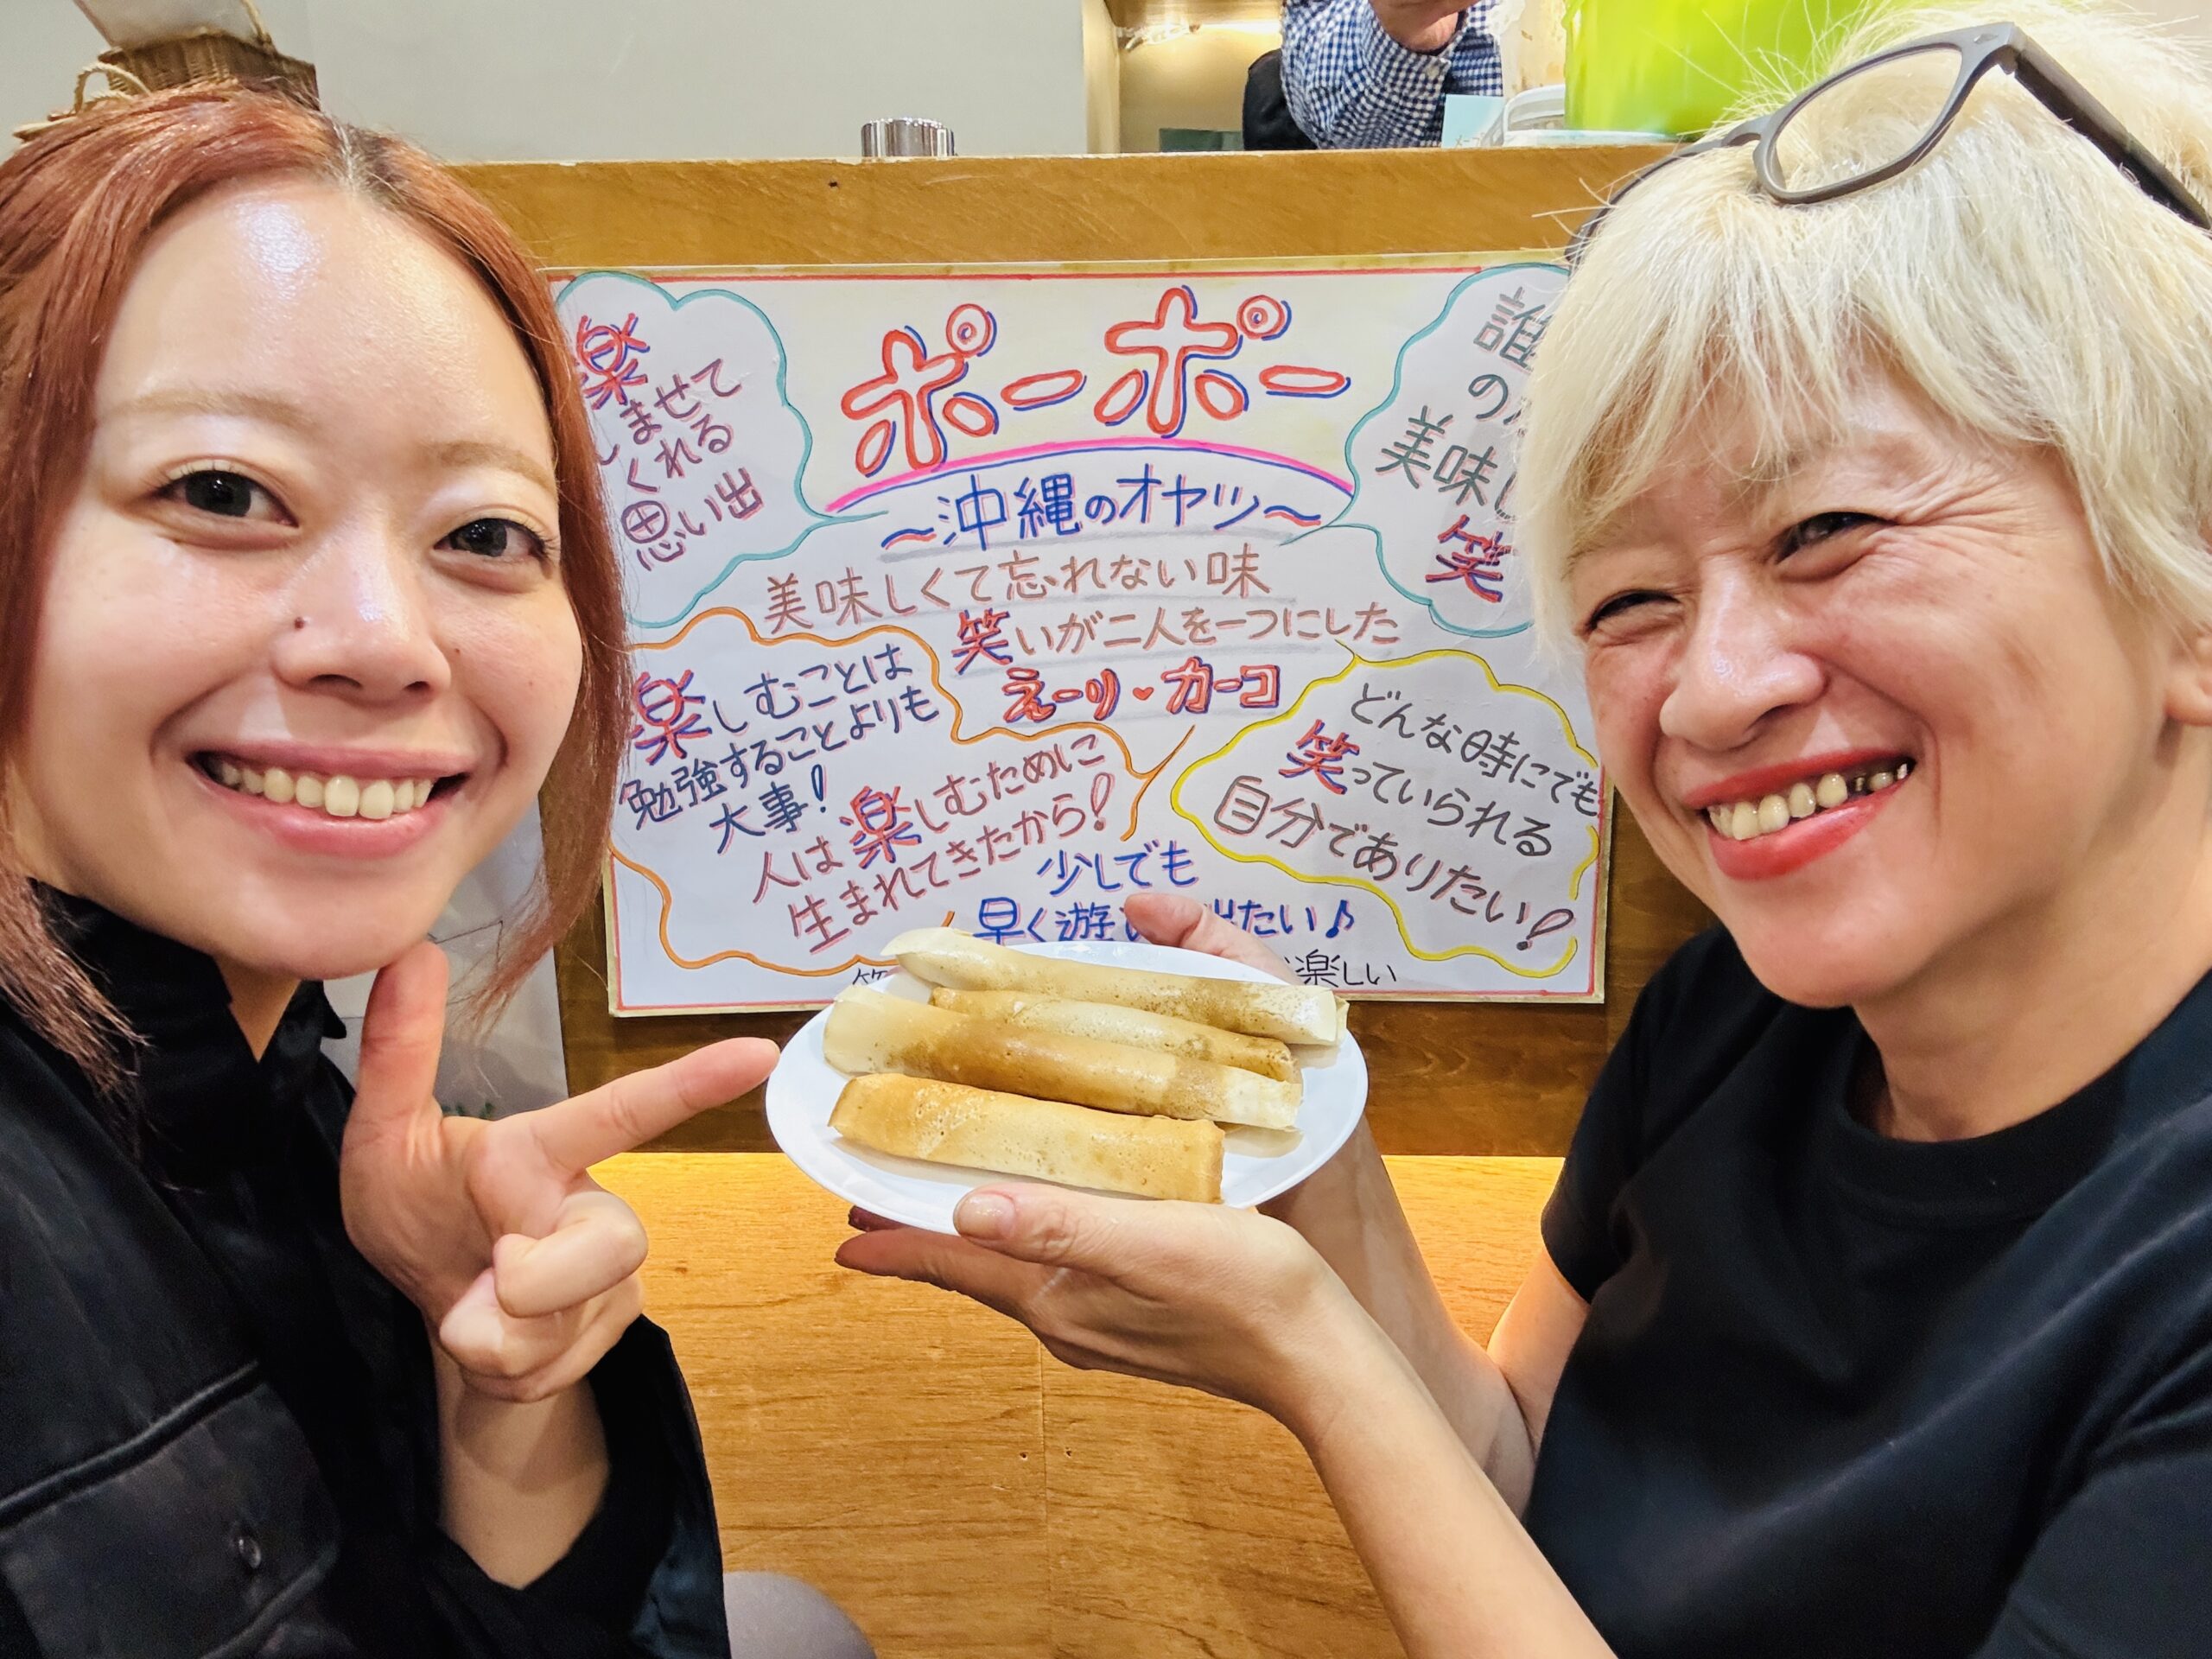 ポーポー
～沖縄のオヤツ～
美味しくて忘れない味
笑いが二人を一つにした
えーり♥カーコ
楽
しませて
くれる
思い出
誰
の
美味し
笑
楽しむことは
勉強することよりも
大事!
人は楽しむために
生まれてきたから!
どんな時にでも
笑っていられる
自分でありたい!
少しでも
早く遊 出たい♪
楽しい